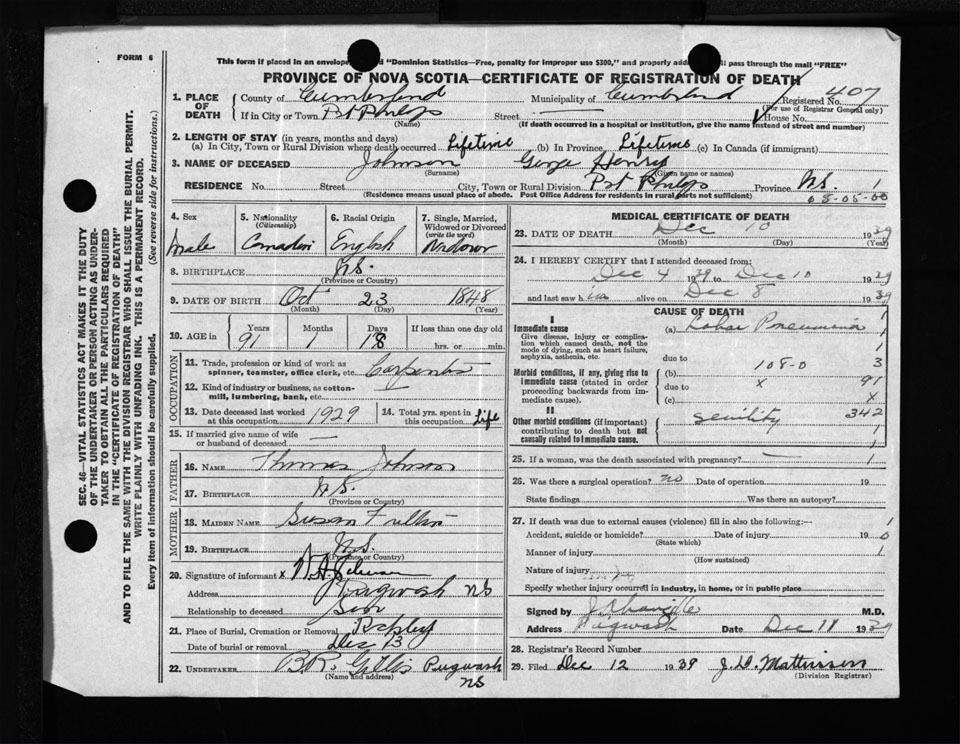 FORM 6
This form if placed in an envelope "Dominion Statistics—Free, penalty for improper use $300," and properly addre ll pass through the mail "FREE"
PROVINCE OF NOVA SCOTIA—CERTIFICATE OF REGISTRATION OF DEATH
1. PLACE OF DEATH County of Cumberland Municipality of Cumberland Registered No. 407
(For use of Registrar General only)
If in City or Town Pt Philips Street — House No.
(Name) (If death occurred in a hospital or institution, give the name instead of street and number)
2. LENGTH OF STAY (in years, months and days)
(a) In City, Town or Rural Division where death occurred Lifetime (b) In Province Lifetime (c) In Canada (if immigrant)
3. NAME OF DECEASED Johnson George Henry
(Surname) (Given name or names)
RESIDENCE No. Street City, Town or Rural Division Prt Philips Province N.S. 1
(Residence means usual place of abode. Post Office Address for residents in rural parts not sufficient) 08-05-00
4. Sex male
5. Nationality (Citizenship) Canadian
6. Racial Origin English
7. Single, Married, Widowed or Divorced (write the word) Widower
8. BIRTHPLACE N.S.
(Province or Country)
9. DATE OF BIRTH Oct 23 1848
(Month) (Day) (Year)
10. AGE in Years 91 Months 1 Days 18 If less than one day old hrs. or min.
OCCUPATION
11. Trade, profession or kind of work as spinner, teamster, office clerk, etc. Carpenter
12. Kind of industry or business, as cotton-mill, lumbering, bank, etc.
13. Date deceased last worked at this occupation 1929
14. Total yrs. spent in this occupation Life
15. If married give name of wife or husband of deceased —
FATHER
16. NAME Thomas Johnson
17. BIRTHPLACE N.S.
(Province or Country)
MOTHER
18. MAIDEN NAME Susan Fulton
19. BIRTHPLACE N.S.
(Province or Country)
20. Signature of informant x
Address Pugwash NS
Relationship to deceased Son
21. Place of Burial, Cremation or Removal
Date of burial or removal Dec 13
22. UNDERTAKER Pugwash NS
(Name and address)
MEDICAL CERTIFICATE OF DEATH
23. DATE OF DEATH Dec 10 1939
(Month) (Day) (Year)
24. I HEREBY CERTIFY that I attended deceased from:
Dec 4 1939 to Dec 10 1939
and last saw him alive on Dec 8 1939
CAUSE OF DEATH
I
Immediate cause (a) Lobar Pneumonia 1
Give disease, injury or complication which caused death, not the mode of dying, such as heart failure, asphyxia, asthenia, etc. 1
due to
Morbid conditions, if any, giving rise to immediate cause (stated in order proceeding backwards from immediate cause). (b) 108-0 3
due to x 91
(c) x
II
Other morbid conditions (if important) contributing to death but not causally related to immediate cause. senility 342
1
25. If a woman, was the death associated with pregnancy? — 1
26. Was there a surgical operation? no Date of operation 19
State findings Was there an autopsy?
27. If death was due to external causes (violence) fill in also the following:— 1
Accident, suicide or homicide? Date of injury 19 0
(State which)
Manner of injury 1
(How sustained)
Nature of injury
Specify whether injury occurred in industry, in home, or in public place
Signed by M.D.
Address Pugwash Date Dec 11 1939
28. Registrar's Record Number
29. Filed Dec 12 1939
(Division Registrar)
SEC. 46—VITAL STATISTICS ACT MAKES IT THE DUTY
OF THE UNDERTAKER OR PERSON ACTING AS UNDER-
TAKER TO OBTAIN ALL THE PARTICULARS REQUIRED
IN THE "CERTIFICATE OF REGISTRATION OF DEATH"
AND TO FILE THE SAME WITH THE DIVISION REGISTRAR WHO SHALL ISSUE THE BURIAL PERMIT.
WRITE PLAINLY WITH UNFADING INK. THIS IS A PERMANENT RECORD.
Every item of information should be carefully supplied. (See reverse side for instructions.)